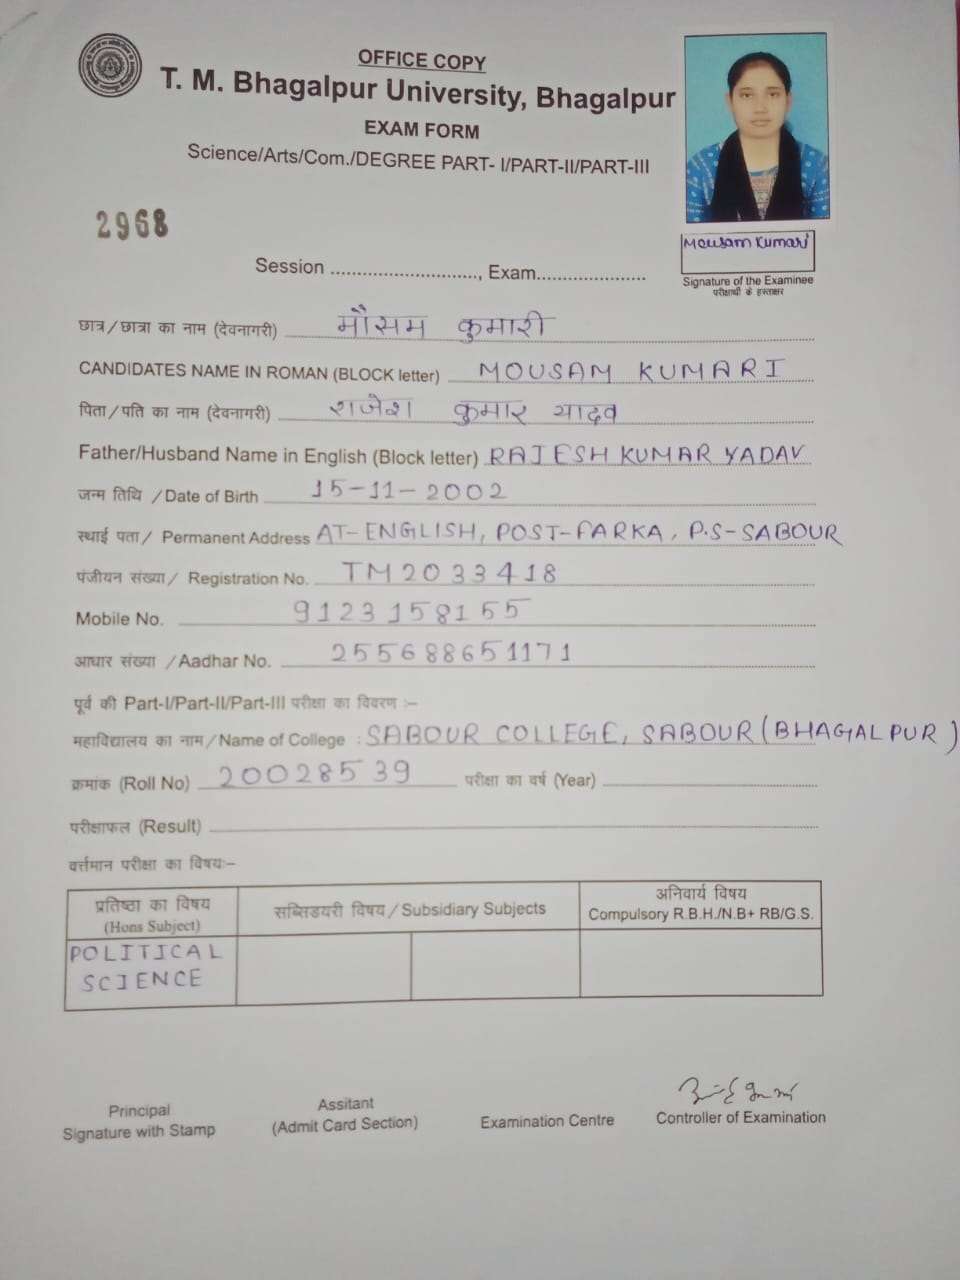 OFFICE COPY
T. M. Bhagalpur University, Bhagalpur
EXAM FORM
Science/Arts/Com./DEGREE PART- I/PART-II/PART-III
2968
Mousam Kumari
Signature of the Examinee
परीक्षार्थी के हस्ताक्षर
Session ............................, Exam.....................
छात्र/छात्रा का नाम (देवनागरी) मौसम कुमारी
CANDIDATES NAME IN ROMAN (BLOCK letter) MOUSAM KUMARI
पिता/पति का नाम (देवनागरी) राजेश कुमार यादव
Father/Husband Name in English (Block letter) RAJESH KUMAR YADAV
जन्म तिथि /Date of Birth 15-11-2002
स्थाई पता/ Permanent Address AT-ENGLISH, POST-FARKA, P.S-SABOUR
पंजीयन संख्या/ Registration No. TM2033418
Mobile No. 9123158155
आधार संख्या /Aadhar No. 255688651171
पूर्व की Part-I/Part-II/Part-III परीक्षा का विवरण :–
महाविद्यालय का नाम/Name of College : SABOUR COLLEGE, SABOUR (BHAGALPUR)
क्रमांक (Roll No) 20028539 परीक्षा का वर्ष (Year)
परीक्षाफल (Result)
वर्त्तमान परीक्षा का विषयः–
प्रतिष्ठा का विषय सब्सिडयरी विषय/Subsidiary Subjects अनिवार्य विषय
(Hons Subject) Compulsory R.B.H./N.B+ RB/G.S.
POLITICAL
SCIENCE
Principal Assitant Examination Centre Controller of Examination
Signature with Stamp (Admit Card Section)